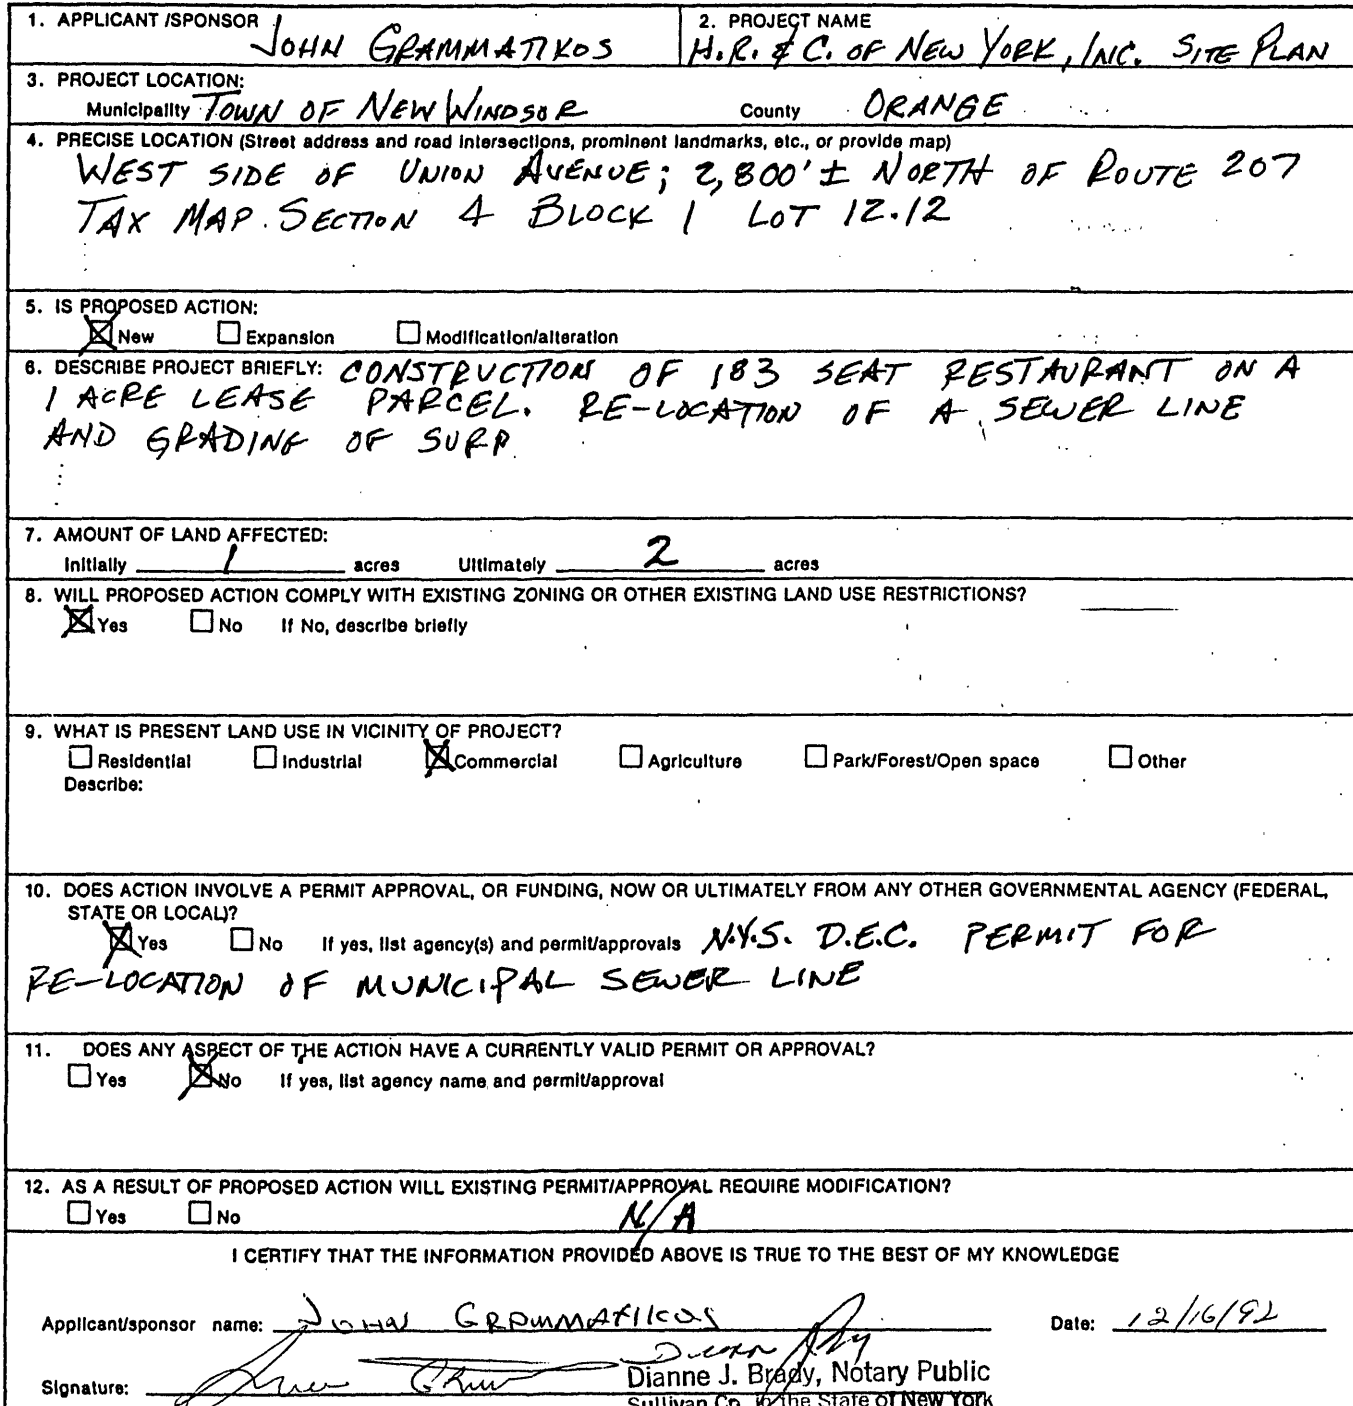 1. APPLICANT /SPONSOR JOHN GRAMMATIKOS
2. PROJECT NAME H.R. & C. OF NEW YORK, INC. SITE PLAN
3. PROJECT LOCATION:
Municipality TOWN OF NEW WINDSOR County ORANGE
4. PRECISE LOCATION (Street address and road intersections, prominent landmarks, etc., or provide map)
WEST SIDE OF UNION AVENUE; 2,800' ± NORTH OF ROUTE 207
TAX MAP SECTION 4 BLOCK 1 LOT 12.12
5. IS PROPOSED ACTION:
☒ New ☐ Expansion ☐ Modification/alteration
6. DESCRIBE PROJECT BRIEFLY: CONSTRUCTION OF 183 SEAT RESTAURANT ON A
1 ACRE LEASE PARCEL. RE-LOCATION OF A SEWER LINE
AND GRADING OF SURP
7. AMOUNT OF LAND AFFECTED:
Initially 1 acres Ultimately 2 acres
8. WILL PROPOSED ACTION COMPLY WITH EXISTING ZONING OR OTHER EXISTING LAND USE RESTRICTIONS?
☒ Yes ☐ No If No, describe briefly
9. WHAT IS PRESENT LAND USE IN VICINITY OF PROJECT?
☐ Residential ☐ Industrial ☒ Commercial ☐ Agriculture ☐ Park/Forest/Open space ☐ Other
Describe:
10. DOES ACTION INVOLVE A PERMIT APPROVAL, OR FUNDING, NOW OR ULTIMATELY FROM ANY OTHER GOVERNMENTAL AGENCY (FEDERAL,
STATE OR LOCAL)?
☒ Yes ☐ No If yes, list agency(s) and permit/approvals N.Y.S. D.E.C. PERMIT FOR
RE-LOCATION OF MUNICIPAL SEWER LINE
11. DOES ANY ASPECT OF THE ACTION HAVE A CURRENTLY VALID PERMIT OR APPROVAL?
☐ Yes ☒ No If yes, list agency name and permit/approval
12. AS A RESULT OF PROPOSED ACTION WILL EXISTING PERMIT/APPROVAL REQUIRE MODIFICATION?
☐ Yes ☐ No N/A
I CERTIFY THAT THE INFORMATION PROVIDED ABOVE IS TRUE TO THE BEST OF MY KNOWLEDGE
Applicant/sponsor name: JOHN GRAMMATIKOS Date: 12/16/92
Signature:
Dianne J. Brady, Notary Public
Sullivan Co. in the State of New York